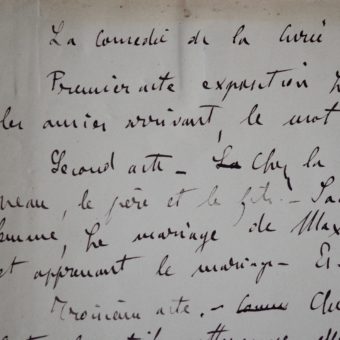 La comedie de la Curée
Premier acte exposition
les amies arrivant, le mot
Second acte - Chez la
le père et le fils. -
femme, Le mariage de Max
et apprenant le mariage -
Troisième acte. -